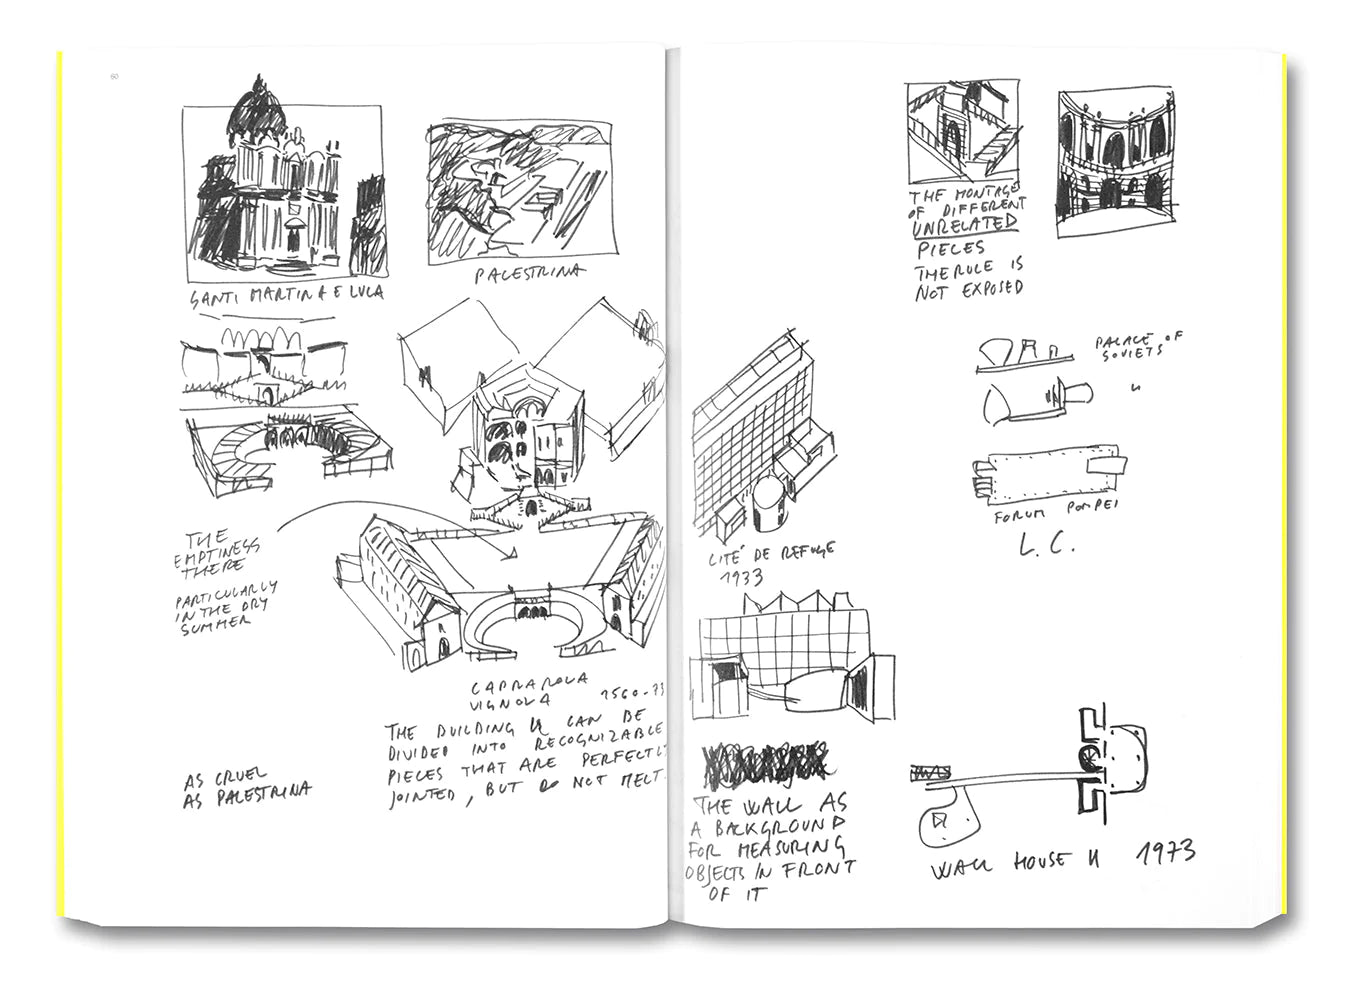 60
SANTI MARTINA E LUCA
PALESTRINA
THE
EMPTINESS
THERE
PARTICULARLY
IN THE DRY
SUMMER
CAPRAROLA
VIGNOLA 1560-73
THE BUILDING CAN BE
DIVIDED INTO RECOGNIZABLE
PIECES THAT ARE PERFECTLY
JOINTED, BUT DO NOT MELT.
AS CRUEL
AS PALESTRINA
THE MONTAGE
OF DIFFERENT
UNRELATED
PIECES
THE RULE IS
NOT EXPOSED
PALACE OF
SOVIETS
"
FORUM POMPEI
L. C.
CITÉ DE REFUGE
1933
THE WALL AS
A BACKGROUND
FOR MEASURING
OBJECTS IN FRONT
OF IT
WALL HOUSE II 1973